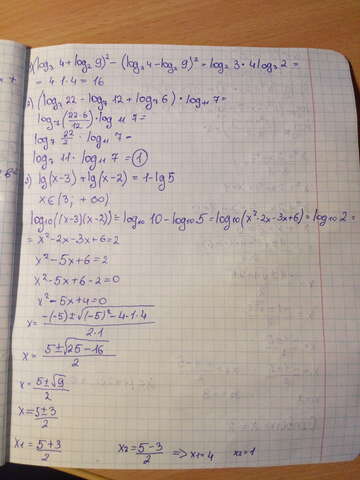 (log₃ 4 + log₂ 9)² - (log₃ 4 - log₂ 9)² = log₂ 3 · 4 log₃ 2 =
= 4 · 1 · 4 = 16
(log₇ 22 - log₇ 12 + log₇ 6) · log₁₁ 7 =
log₇ (22·6/12) · log₁₁ 7 =
log₇ 22/2 · log₁₁ 7 =
log₇ 11 · log₁₁ 7 = 1
lg(x-3) + lg(x-2) = 1 - lg5
x∈(3; +∞)
log₁₀((x-3)(x-2)) = log₁₀ 10 - log₁₀ 5 = log₁₀(x²-2x-3x+6) = log₁₀ 2 =
= x²-2x-3x+6=2
x²-5x+6=2
x²-5x+6-2=0
x²-5x+4=0
x = -(-5)±√(-5)²-4·1·4 / 2·1
x = 5±√25-16 / 2
x = 5±√9 / 2
x = 5±3 / 2
x₁ = 5+3 / 2 x₂ = 5-3 / 2 => x₁=4 x₂=1